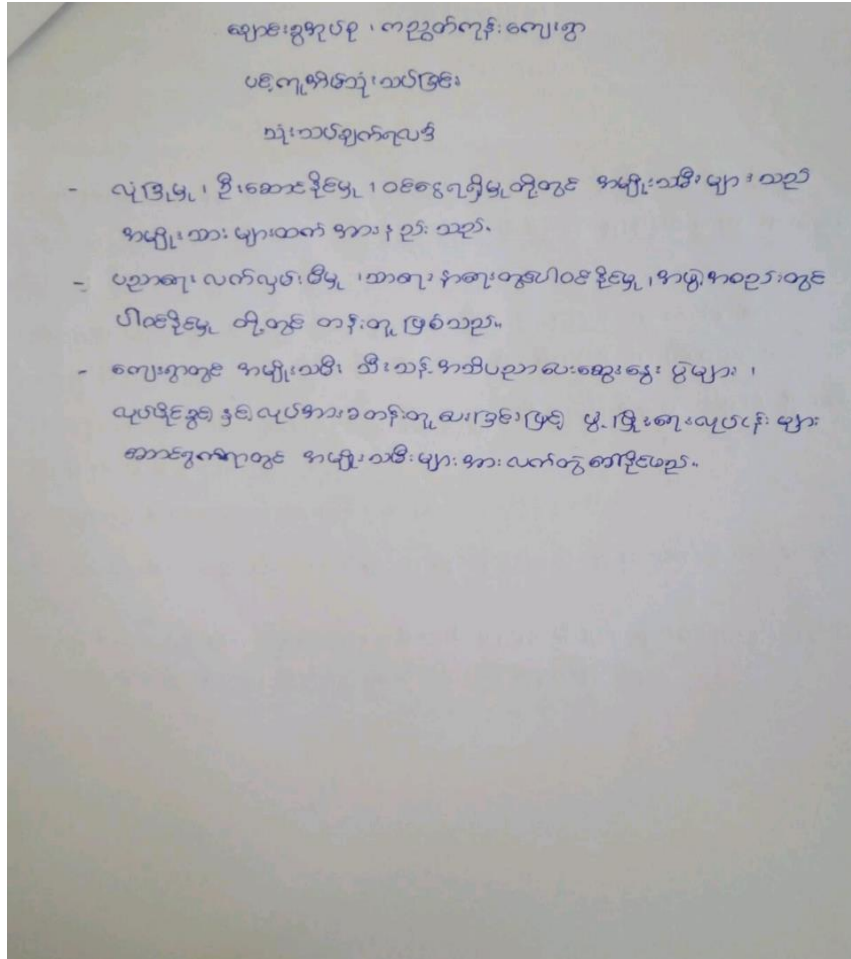 ချောင်းခွအုပ်စု ၊ ကညွတ်ကုန်းကျေးရွာ
ပင့်ကူအိမ်သုံးသပ်ခြင်း
သုံးသပ်ချက်ရလဒ်
- လုံခြုံမှု ၊ ဦးဆောင်နိုင်မှု ၊ ဝင်ငွေရရှိမှုတို့တွင် အမျိုးသမီးများသည်
အမျိုးသားများထက် အားနည်းသည်။
- ပညာရေး လက်လှမ်းမီမှု ၊ သာရေး နာရေးတွင်ပါဝင်နိုင်မှု ၊ အဖွဲ့အစည်းတွင်
ပါဝင်နိုင်မှု တို့တွင် တန်းတူ ဖြစ်သည်။
- ကျေးရွာတွင် အမျိုးသမီး သီးသန့် အသိပညာပေးဆွေးနွေး ပွဲများ ၊
လုပ်ပိုင်ခွင့် နှင့် လုပ်အားခတန်းတူပေးခြင်းဖြင့် ဖွံ့ဖြိုးရေးလုပ်ငန်း များ
ဆောင်ရွက်ရာတွင် အမျိုးသမီးများအား လက်တွဲခေါ်နိုင်မည်။